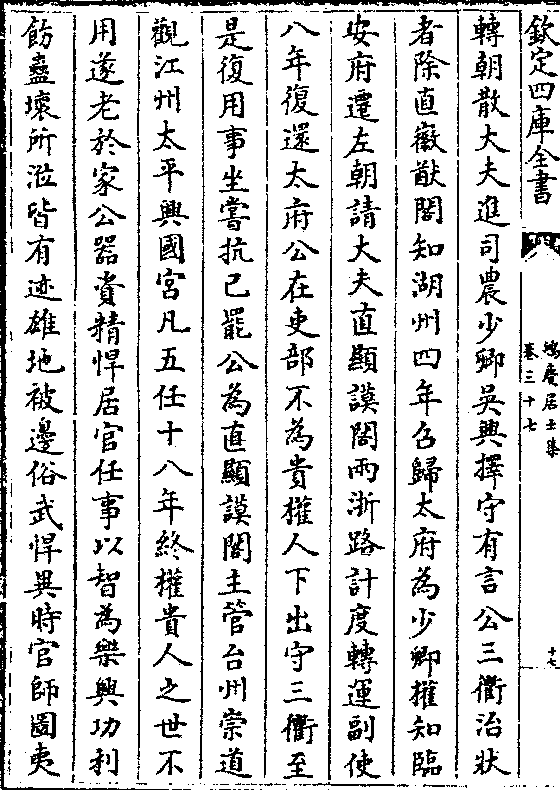 欽定四庫全書
鴻慶居士集
卷三十七
十七
轉朝散大夫進司農少卿吳興擇守有言公三衢治狀
者除直徽猷閣知湖州四年召歸太府為少卿權知臨
安府遷左朝請大夫直顯謨閣兩浙路計度轉運副使
八年復還太府公在吏部不為貴權人下出守三衢至
是復用事坐嘗抗已罷公為直顯謨閣主管台州崇道
觀江州太平興國宮凡五任十八年終權貴人之世不
用遂老於家公器資精悍居官任事以智為樂興功利
飭蠱壞所涖皆有迹雄地被邊俗武悍異時官師圖夷